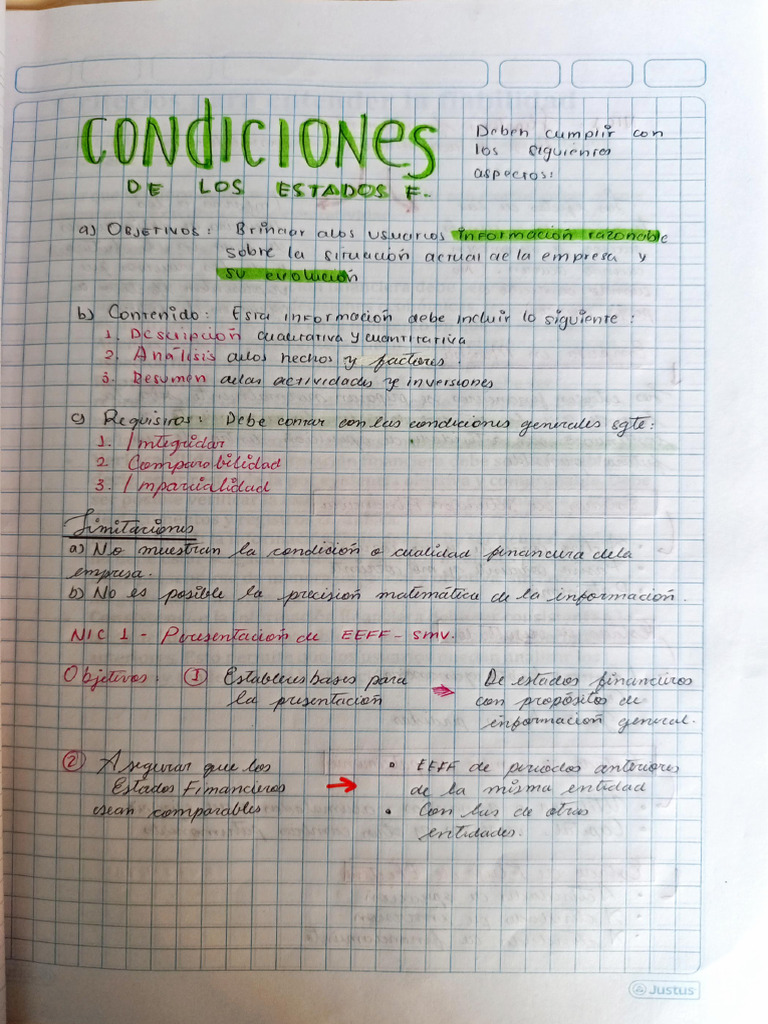 CONDICIONES
DE LOS ESTADOS F.
Deben cumplir con
los siguientes
aspectos:
a) OBJETIVOS: Brindar a los usuarios información razonable
sobre la situación actual de la empresa y
su evolución
b) Contenido: Esta información debe incluir lo siguiente:
1. Descripción cualitativa y cuantitativa
2. Análisis de los hechos y factores.
3. Resumen de las actividades y inversiones
c) Requisitos: Debe contar con las condiciones generales sgte:
1. Integridad
2 Comparabilidad
3. Imparcialidad
Limitaciones
a) No muestran la condición o cualidad financiera de la
empresa.
b) No es posible la precisión matemática de la información.
NIC 1 - Presentación de EEFF - SMV.
Objetivos: ① Establecer bases para
la presentación
→ De estados financieros
con propósitos de
información general.
② Asegurar que los
Estados Financieros
sean comparables
→ • EEFF de periodos anteriores
de la misma entidad
• Con las de otras
entidades.
Justus